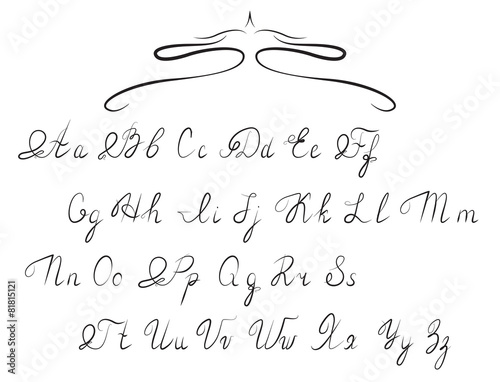 Aa Bb Cc Dd Ee Ff
Gg Hh Ii Jj Kk Ll Mm
Nn Oo Pp Qq Rr Ss
Tt Uu Vv Ww Xx Yy Zz
Adobe Stock | #81815121